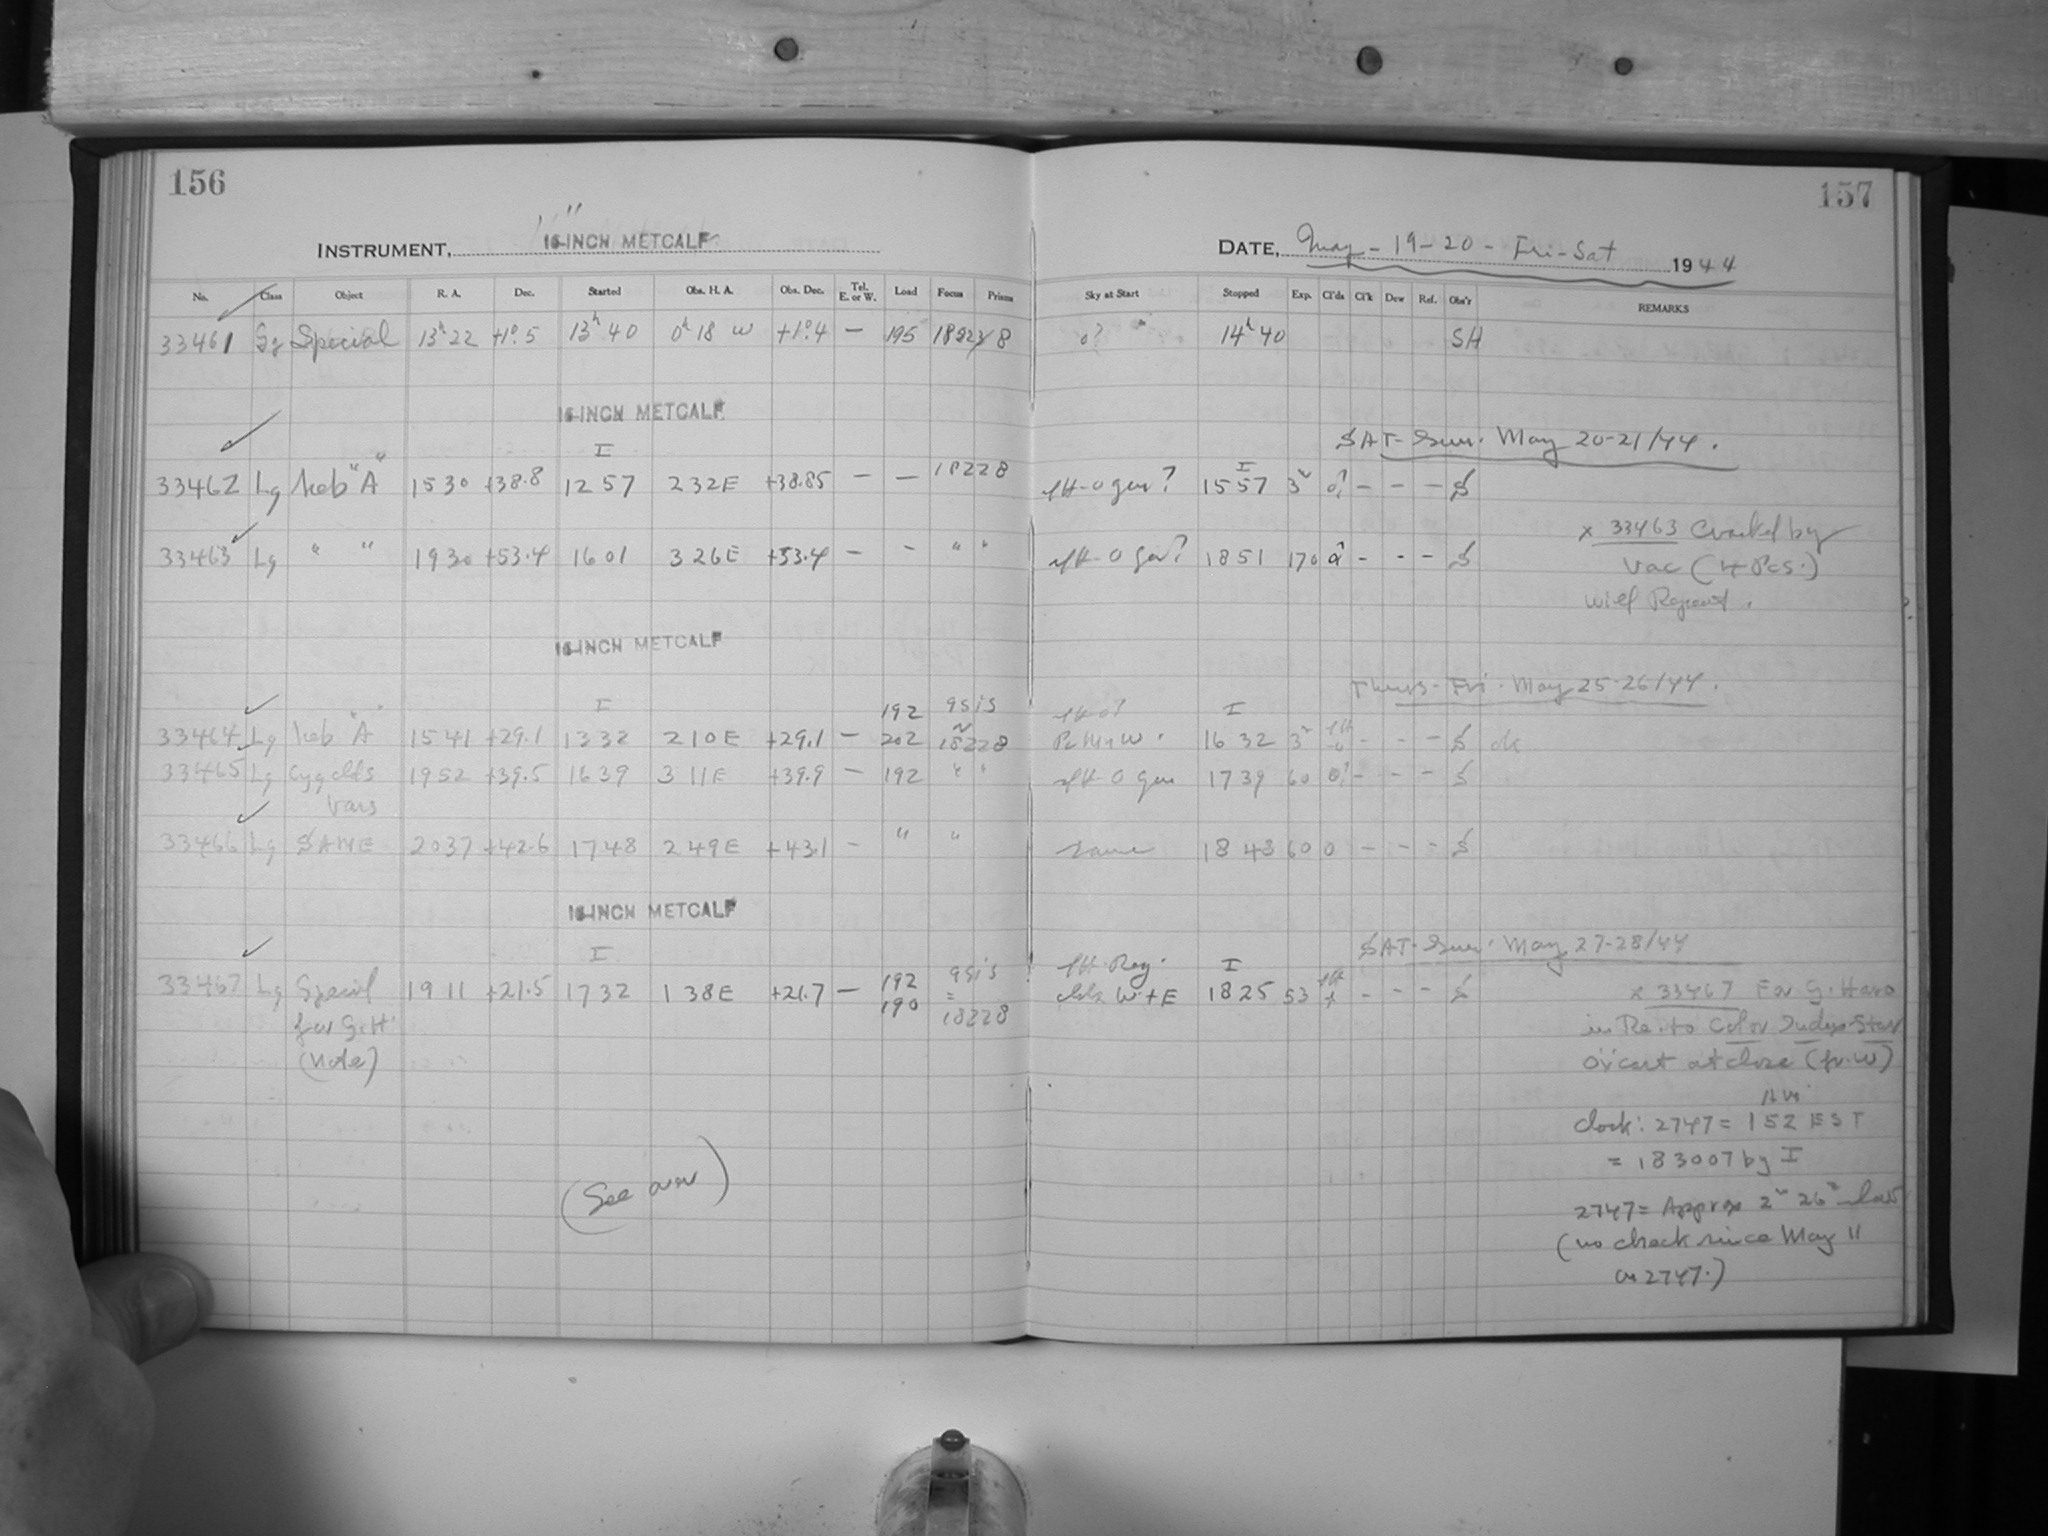 156
INSTRUMENT, 16-INCH METCALF
No. Class Object R. A. Dec. Started Obs. H. A. Obs. Dec. Tel. E. or W. Load Focus Prisms
33461 Special 13h 22 +1°.5 13h 40 0h 18 W +1°.4 — 195 18228
16-INCH METCALF
I
33462 Lg neb "A" 1530 +38.8 1257 232E +38.85 — — 18228
33463 Lg " " 1930 +53.4 1601 326E +53.4 — - " "
16-INCH METCALF
I 192
33464 Lg neb "A" 1541 +29.1 1332 210E +29.1 — 202 18228
33465 Lg Cyg clds 1952 +39.5 1639 311E +39.9 — 192 " "
vars
33466 Lg SAME 2037 +42.6 1748 249E +43.1 — " "
16-INCH METCALF
I
33467 Lg Special 1911 +21.5 1732 138E +21.7 — 192
for G.H. 190 = 18228
(note)
(See over)
157
DATE, May - 19-20 - Fri-Sat 1944
Sky at Start Stopped Exp. Cl'ds Cl'k Dew Ref. Obs'r REMARKS
0? 14h 40 SH
SAT-Sun. May 20-21/44.
I
0 gen? 1557 3h 0? - - - S
x 33463 Cracked by
0 gen? 1851 170 - - - S
Vac (4 Pcs.)
will Repeat.
Thurs-Fri. May 25-26/44.
I
1632 3h - - - S ok
0 gen 1739 60 0? - - - S
same 1848 60 0 - - - S
SAT-Sun. May 27-28/44
I
W+E 1825 53 - - - S
x 33467 For G. Haro
in Re. to Color Index Star
O'cast at close (fr. W)
AM
Clock: 2747 = 152 EST
= 183007 by I
2747 = Approx 2m 26s slow
(no check since May 11
on 2747.)